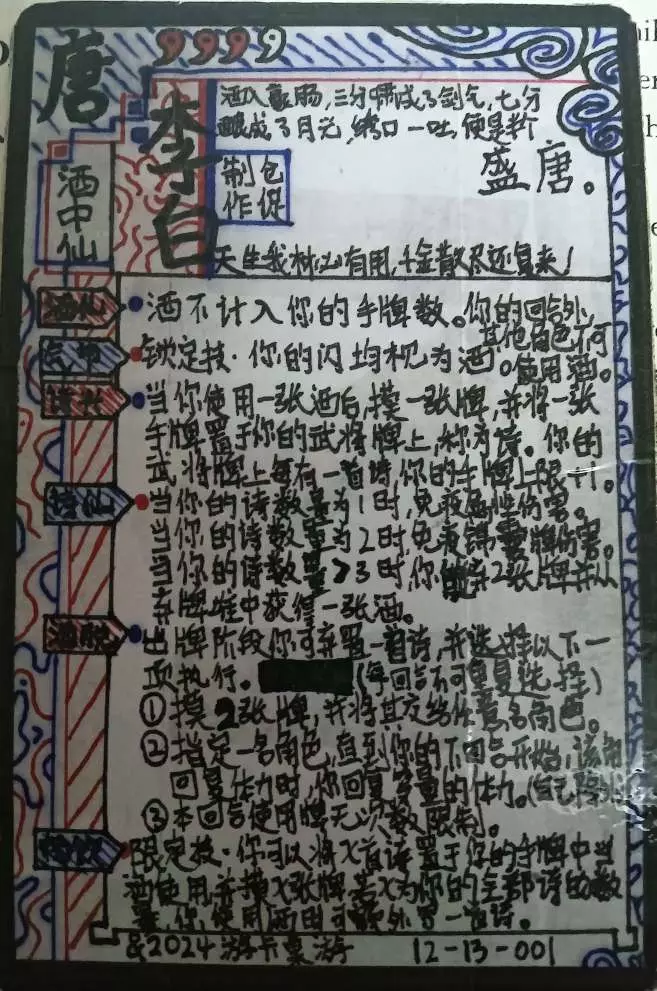 唐
9999
李白
酒中仙
酒入豪肠,三分啸成了剑气,七分
酿成了月光,绣口一吐,便是半个
盛唐。
制作
天生我材必有用,千金散尽还复来!
酒仙
酒不计入你的手牌数。你的回合外,
其他角色不可
使用酒。
锁定技·你的闪均视为酒。
诗兴
当你使用一张酒后,摸一张牌,并将一张
手牌置于你的武将牌上,称为诗。你的
武将牌上每有一首诗,你的手牌上限+1。
诗仙
当你的诗数量为1时,免疫属性伤害。
当你的诗数量为2时,免疫锦囊牌伤害。
当你的诗数量≥3时,你能弃2张牌并从
弃牌堆中获得一张酒。
洒脱
出牌阶段你可弃置一首诗,并选择以下一
项执行。(每回合不可重复选择)
①摸2张牌,并将其交给任意名角色。
②指定一名角色,直到你的下回合开始,该角
回复体力时,你回复等量的体力。
③本回合使用牌无次数限制。
限定技·你可以将X首诗置于你的手牌中当
酒使用并摸X张牌,若X为你的全部诗的数
量,你使用酒时可额外置一首诗。
&2024游卡桌游
12-13-001